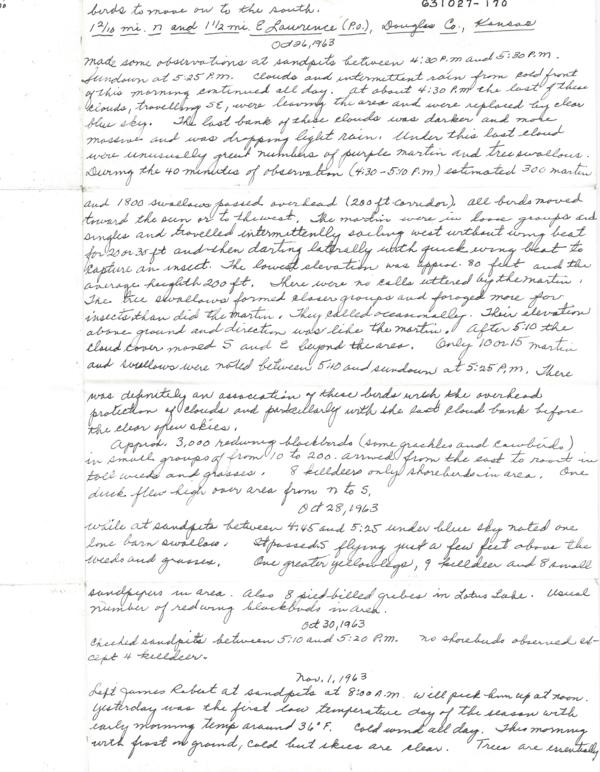 birds to move on to the south.
631027-170
1 2/10 mi. n and 1 1/2 mi. E Lawrence (P.O.), Douglas Co., Kansas
Oct 26, 1963
Made some observations at sandpits between 4:30 P.M and 5:30 P.M.
Sundown at 5:25 P.M. Clouds and intermittent rain from cold front
of this morning continued all day. At about 4:30 P.M the last of these
clouds, travelling SE, were leaving the area and were replaced by clear
blue sky. The last bank of these clouds was darker and more
massive and was dropping light rain. Under this last cloud
were unusually great numbers of purple martin and tree swallows.
During the 40 minutes of observation (4:30 - 5:10 P.M) estimated 300 martin
and 1800 swallows passed overhead (200 ft corridor). All birds moved
toward the sun or to the west. The martin were in loose groups and
singles and travelled intermittently sailing west without wing beat
for 20 or 30 ft and then darting laterally with quick wing beat to
capture an insect. The lowest elevation was approx. 80 feet and the
average heighth 200 ft. There were no calls uttered by the martin.
The tree swallows formed closer groups and foraged more for
insects than did the martin. They called occasionally. Their elevation
above ground and direction was like the martin. After 5:10 the
cloud cover moved S and E beyond the area. Only 10 or 15 martin
and swallows were noted between 5:10 and sundown at 5:25 P.M. There
was definitely an association of these birds with the overhead
protection of clouds and particularly with the last cloud bank before
the clear open skies.
Approx. 3,000 redwing blackbirds (some grackles and cowbirds)
in small groups of from 10 to 200 arrived from the east to roost in
tall weeds and grasses. 8 killdeers only shorebirds in area. One
duck flew high over area from n to S.
Oct 28, 1963
While at sandpits between 4:45 and 5:25 under blue sky noted one
lone barn swallow. It passed S flying just a few feet above the
weeds and grasses. One greater yellowlegs, 9 killdeer and 8 small
sandpipers in area. Also 8 pied-billed grebes in Lotus Lake. Usual
number of redwing blackbirds in area.
Oct 30, 1963
Checked sandpits between 5:10 and 5:20 P.M. No shorebirds observed ex-
cept 4 killdeer.
Nov. 1, 1963
Left James Robert at sandpits at 8:00 A.M. will pick him up at noon.
Yesterday was the first low temperature day of the season with
early morning temp around 36°F. Cold wind all day. This morning
with frost on ground, cold but skies are clear. Trees are essentially